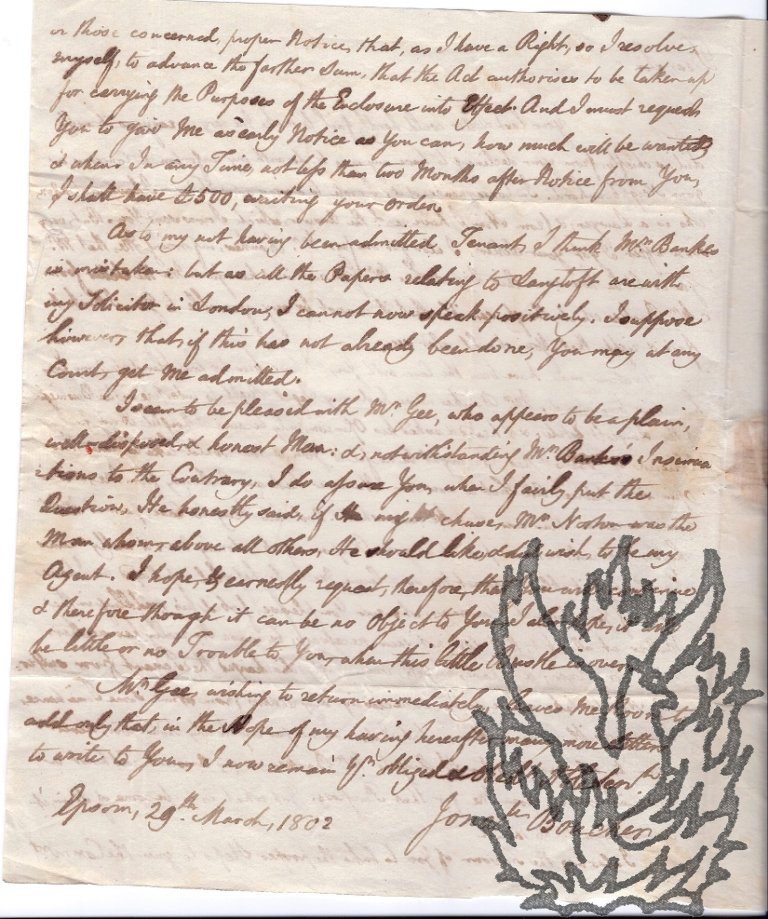 or those concerned, proper Notice, that, as I have a Right, so I resolve,
myself, to advance the farther Sum, that the Act authorises to be taken up
for carrying the Purposes of the Enclosure into Effect. And I must request
You to give Me as early Notice as You can, how much will be wanted,
& when. In any Time, not less than two Months after Notice from You,
I shall have £500, waiting your Orders.
As to my not having been admitted Tenant, I think Mr. Bankes
is mistaken: but as all the Papers relating to Langtoft are with
my Solicitor in London, I cannot now speak positively. I suppose
however, that, if this has not already been done, You may at any
Court, get Me admitted.
I seem to be pleased with Mr. Gee, who appears to be a plain,
well-disposed, & honest Man: &, notwithstanding Mr. Bankes's Insinua
-tions to the Contrary, I do assure You, when I fairly put the
Question, He honestly said, if He might chuse, Mr. Norton was the
Man whom, above all others, He should like, & did wish, to be my
Agent. I hope, & earnestly request, therefore, that You will continue
& therefore though it can be no Object to You, I also hope, it will
be little or no Trouble to You, when this little Bustle is over.
Mr. Gee, wishing to return immediately, leaves Me Room to
add only, that, in the Hope of my having hereafter many more Letters
to write to You, I now remain Yr. obliged &
Epsom, 29th. March, 1802
Jonan. Boucher